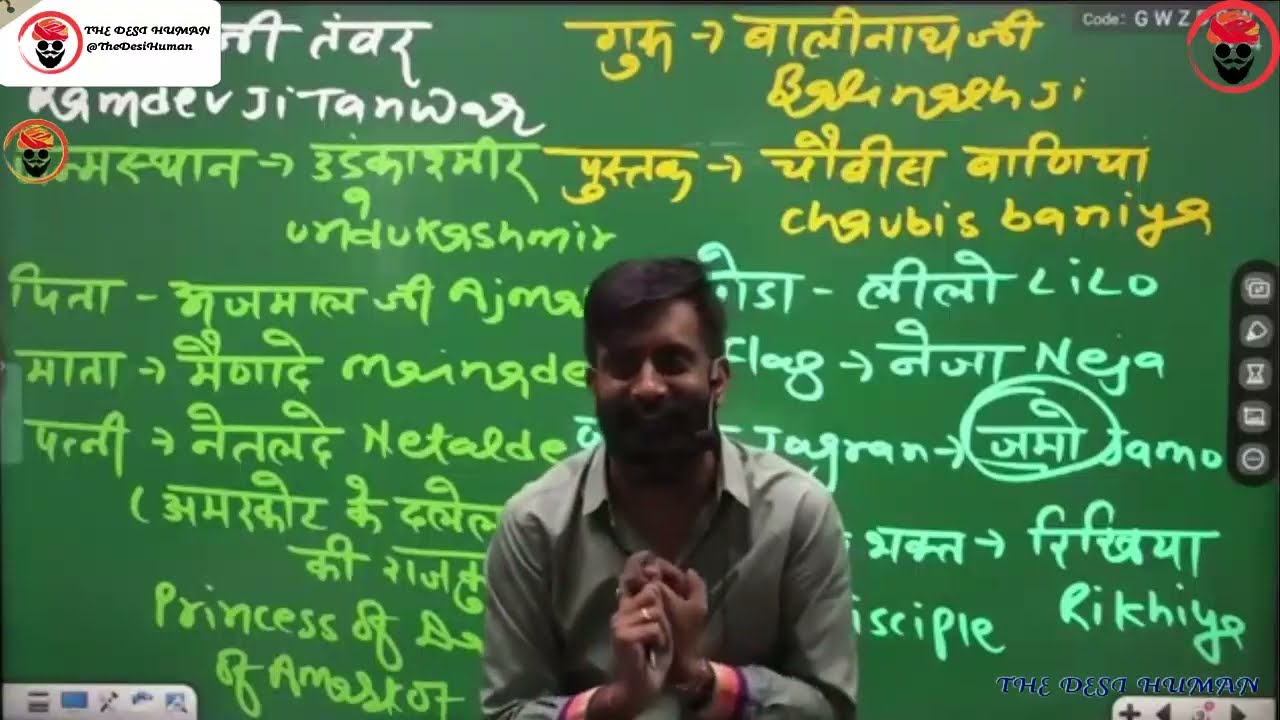 THE DESI HUMAN
@TheDesiHuman
जी तंवर
Ramdev Ji Tanwar
जन्मस्थान → उडंकाश्मीर
undukashmir
पिता - अजमाल जी Ajma
माता → मैणादे mainade
पत्नी → नेतलदे Netalde
(अमरकोट के दलेल
की राजकु
Princess of
of Amarkot
Code: G W Z
गुरु → बालीनाथ जी
Balinath Ji
पुस्तक → चौवीस बाणिया
Chaubis baniya
घोडा - लीलो LiLo
Flag → नेजा Neja
Jagran → जमो Jamo
भक्त → रिखिया
isciple Rikhiya
THE DESI HUMAN